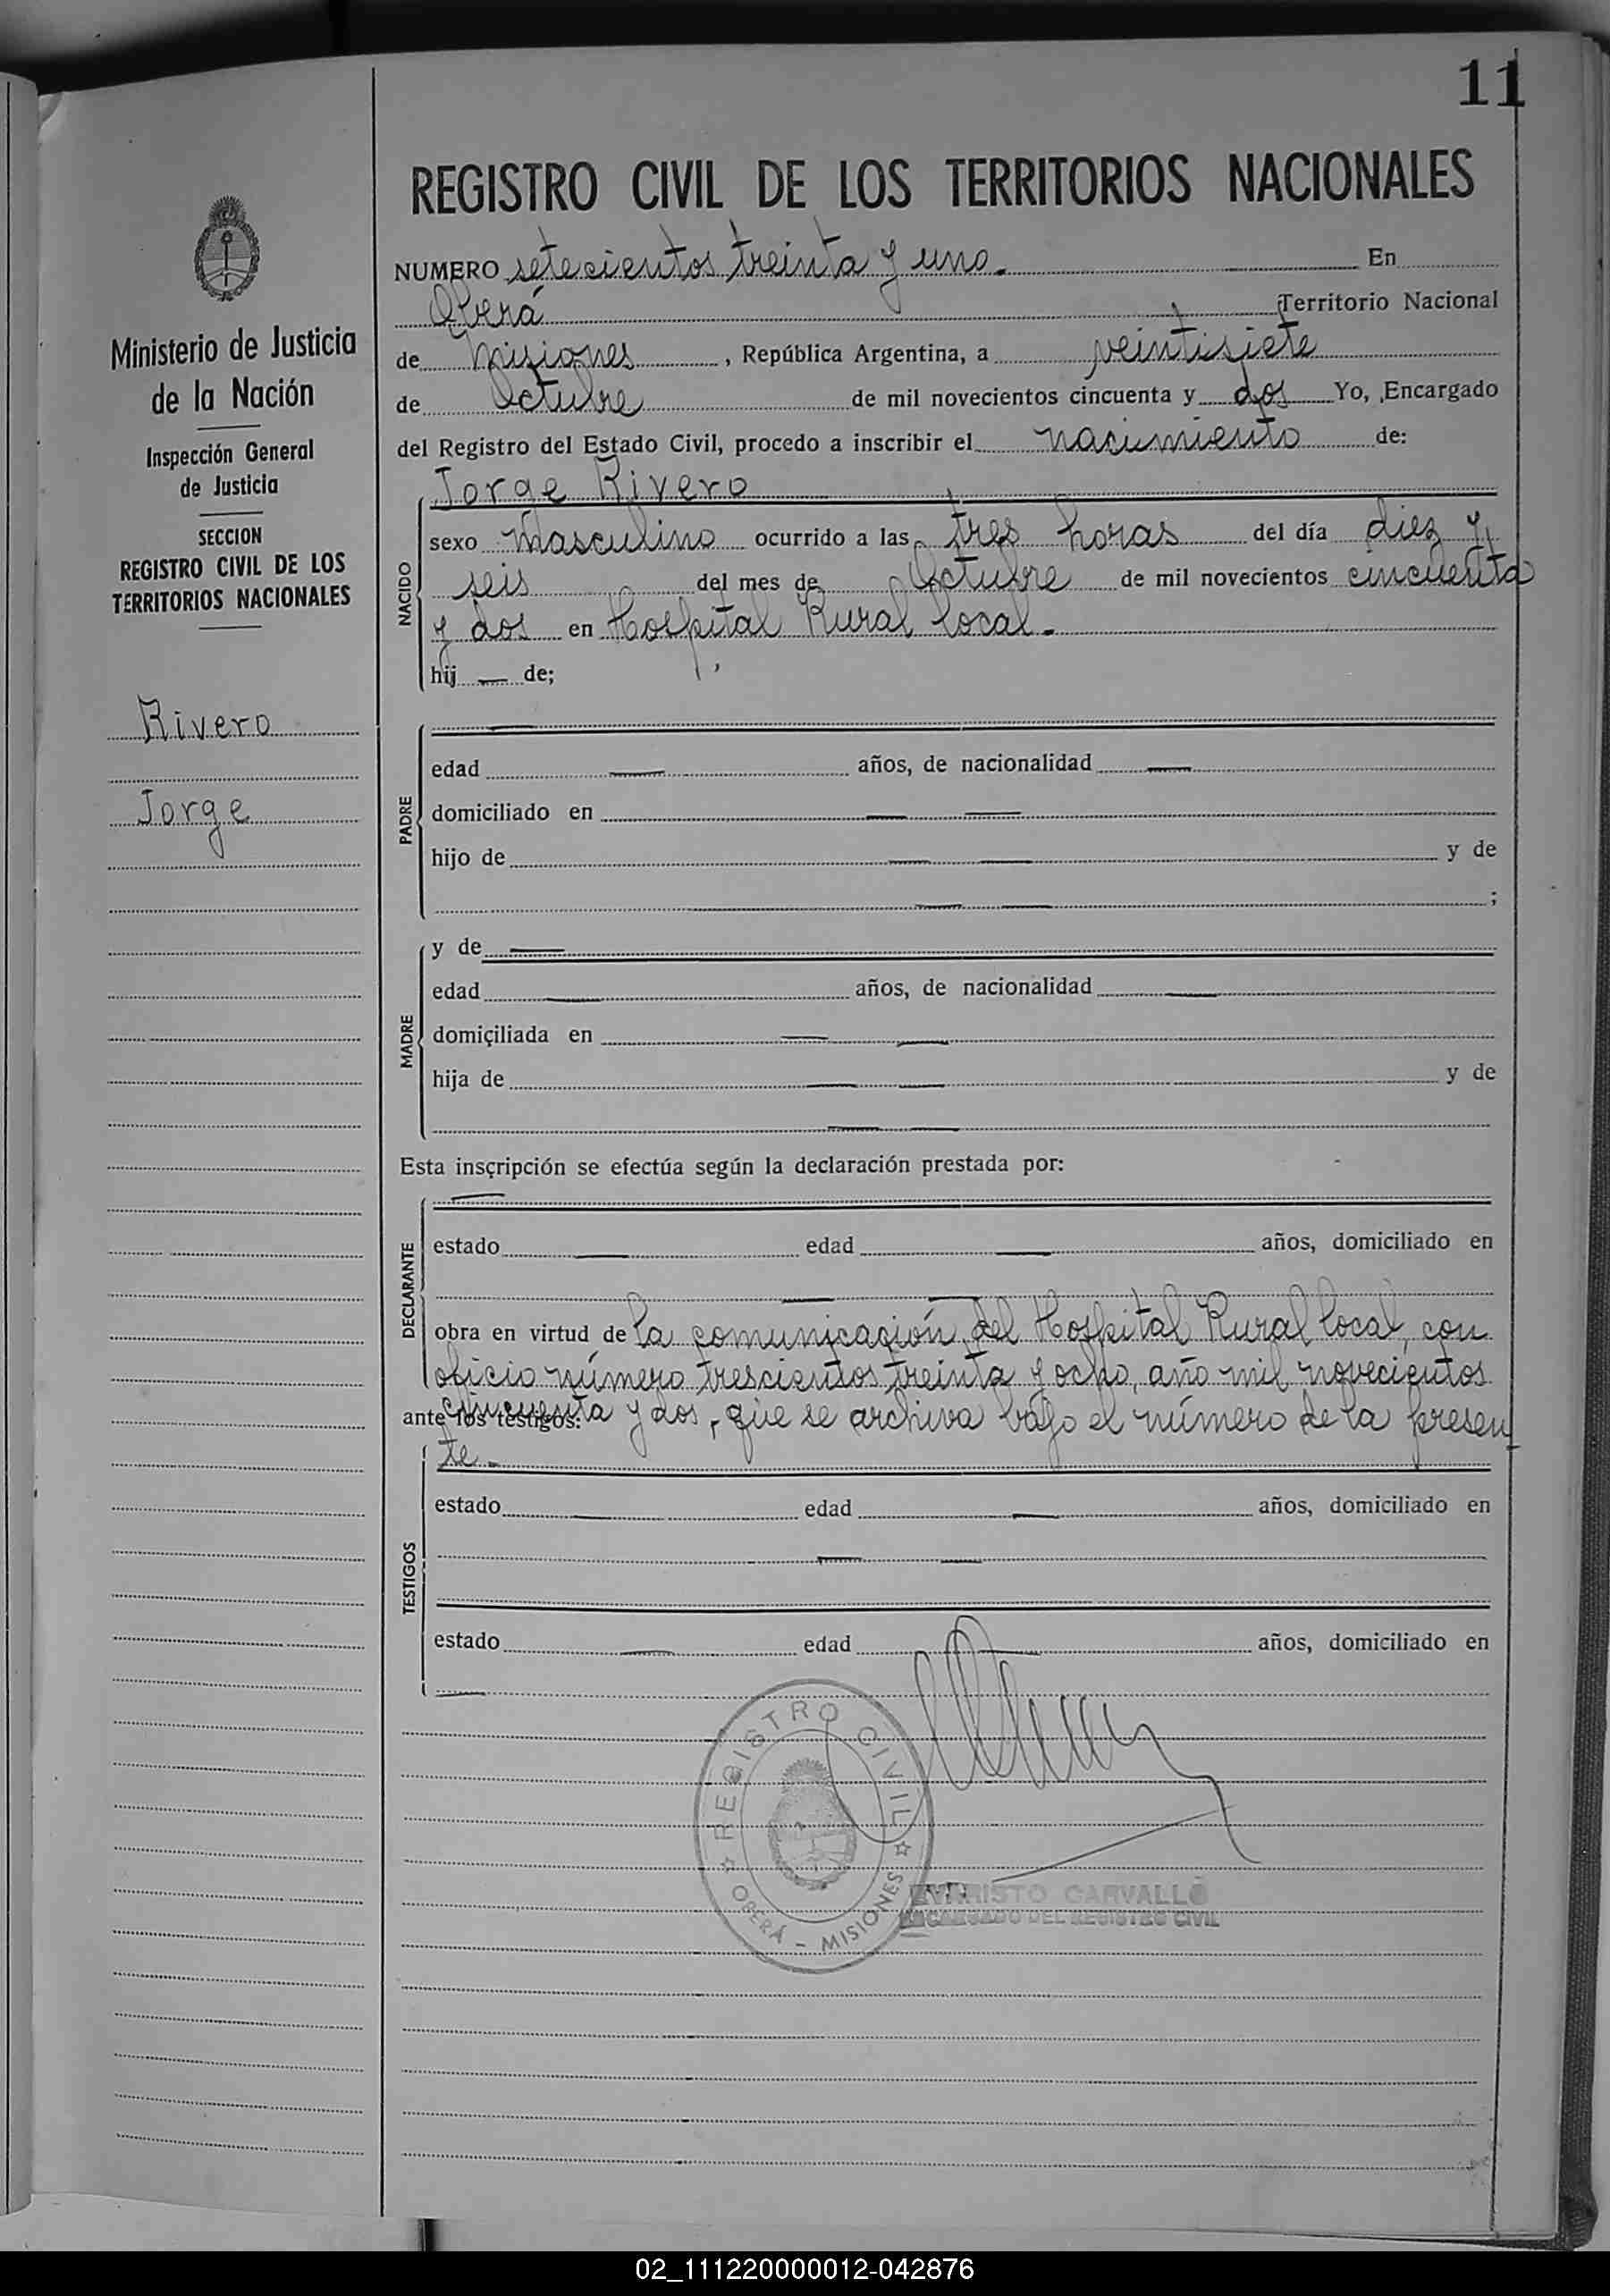 11
REGISTRO CIVIL DE LOS TERRITORIOS NACIONALES
Ministerio de Justicia
de la Nación
Inspección General
de Justicia
SECCION
REGISTRO CIVIL DE LOS
TERRITORIOS NACIONALES
Rivero
Jorge
NUMERO setecientos treinta y uno. En
Oberá Territorio Nacional
de Misiones, República Argentina, a veintisiete
de Octubre de mil novecientos cincuenta y dos Yo, Encargado
del Registro del Estado Civil, procedo a inscribir el nacimiento de:
NACIDO
Jorge Rivero
sexo Masculino ocurrido a las tres horas del día diez y
seis del mes de Octubre de mil novecientos cincuenta
y dos en Hospital Rural local.
hij — de;
PADRE
—
edad — años, de nacionalidad —
domiciliado en — —
hijo de — — y de
— — ;
MADRE
y de —
edad — años, de nacionalidad —
domiciliada en — —
hija de — — y de
— —
Esta inscripción se efectúa según la declaración prestada por:
DECLARANTE
—
estado — edad — años, domiciliado en
— —
obra en virtud de la comunicación del Hospital Rural local, con
oficio número trescientos treinta y ocho, año mil novecientos
ante los testigos: cincuenta y dos, que se archiva bajo el número de la presen
te.-
TESTIGOS
estado — edad — años, domiciliado en
— —
estado — edad — años, domiciliado en
—
REGISTRO CIVIL
OBERÁ - MISIONES
EVARISTO CARVALLO
ENCARGADO DEL REGISTRO CIVIL
02_111220000012-042876